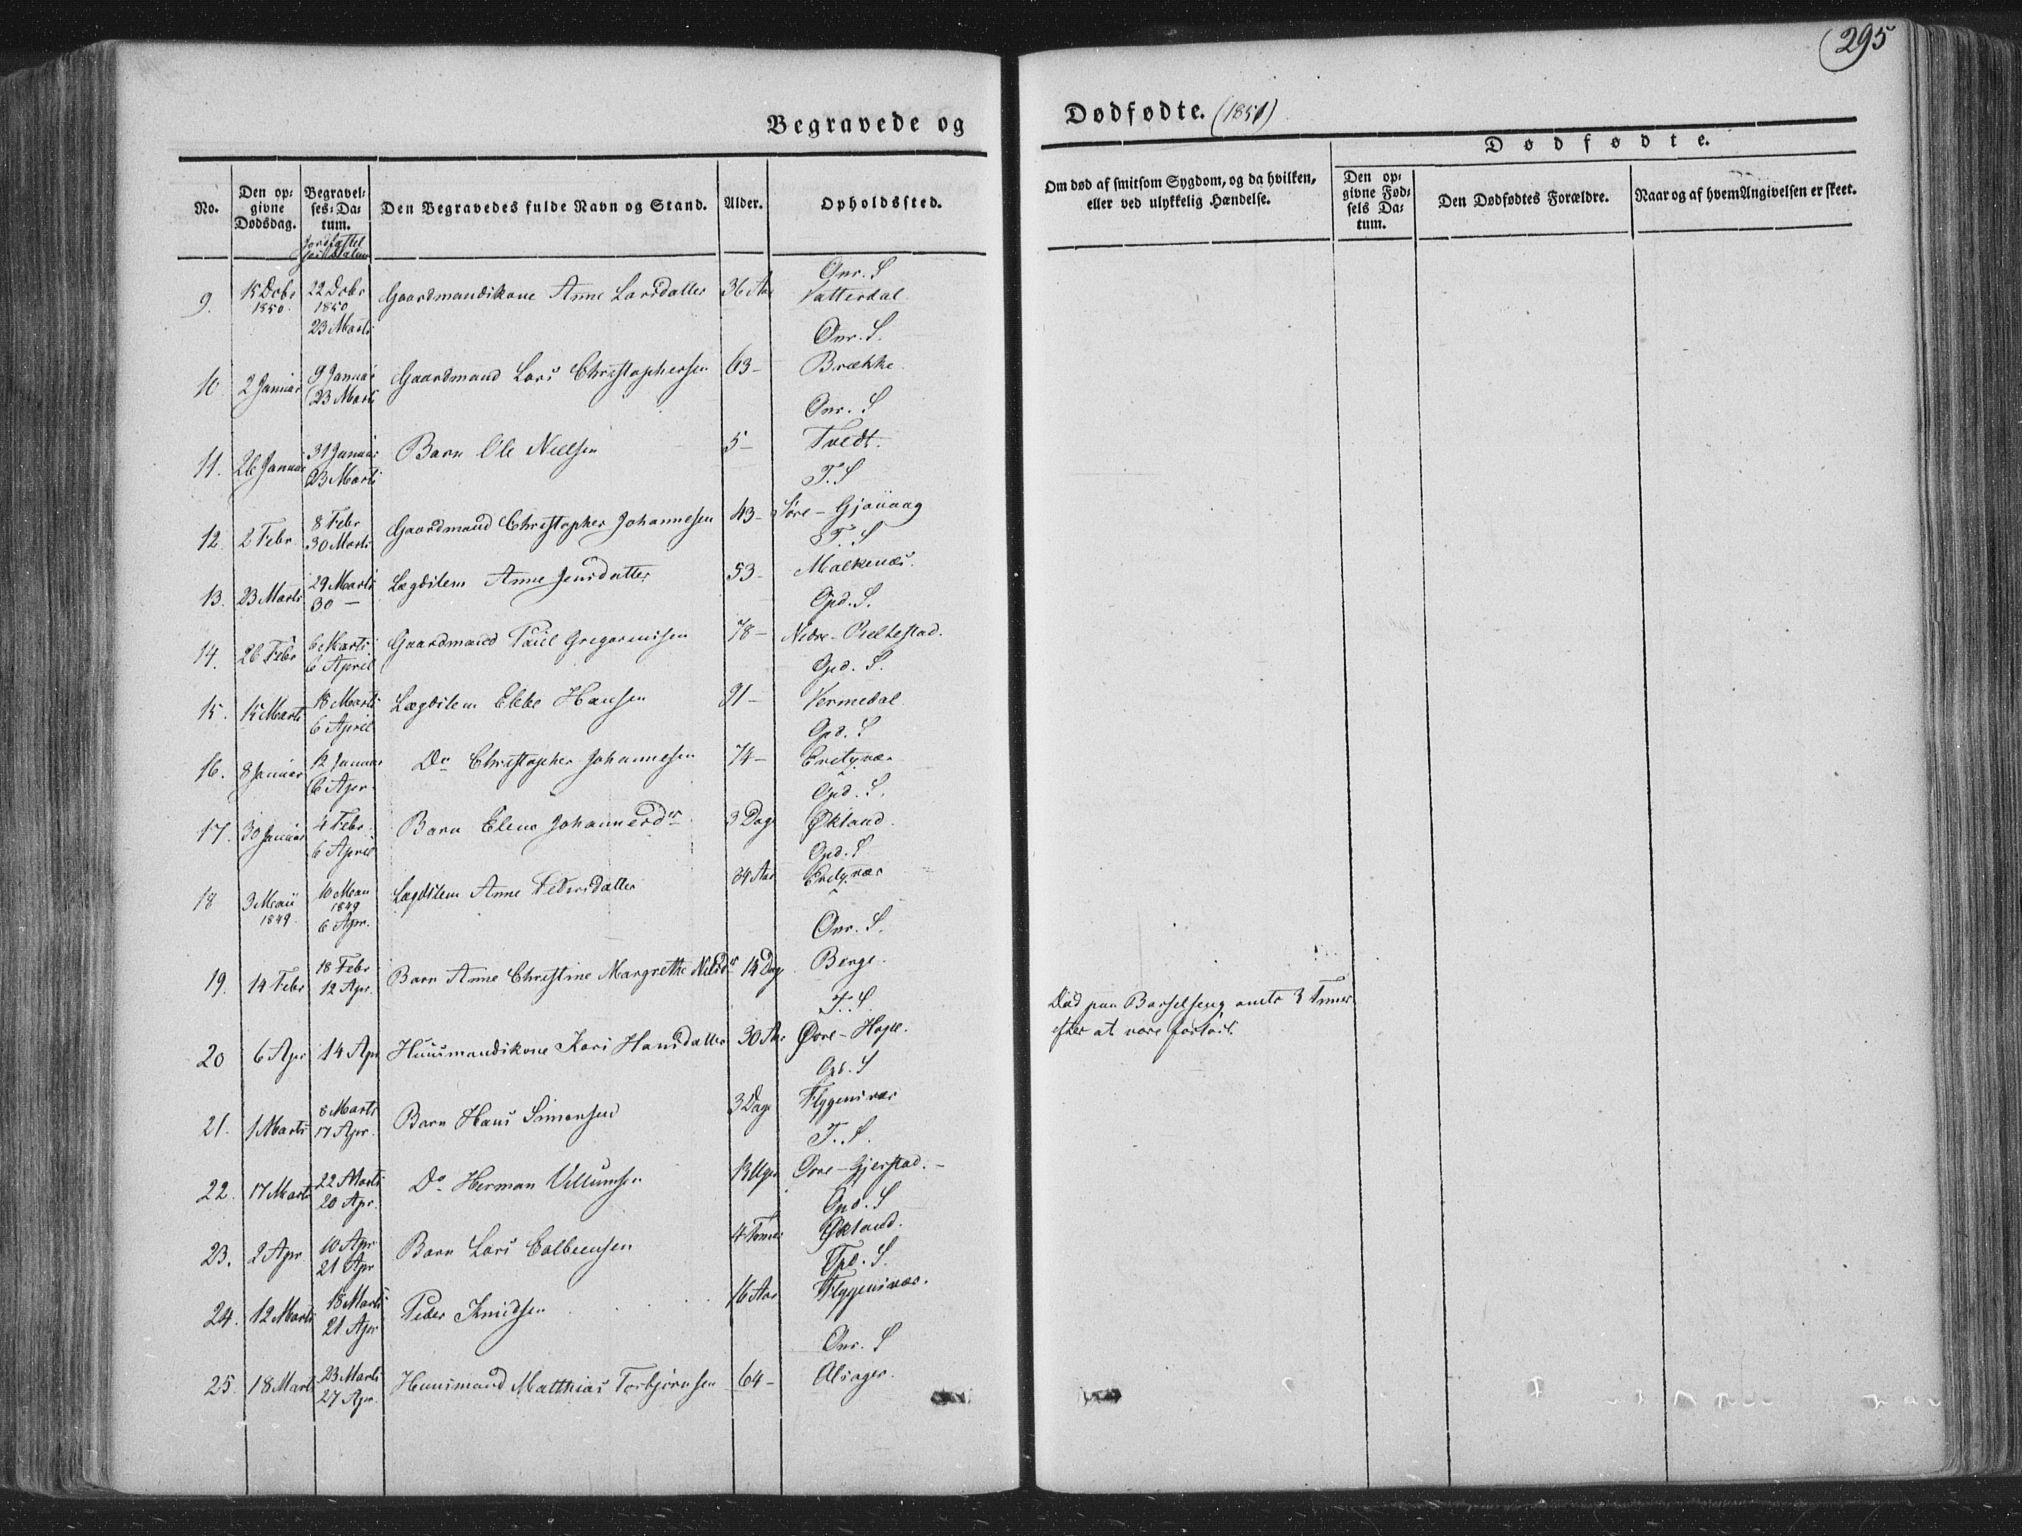 295
Begravede og Dødfødte. (1851)
No.
Den op-
givne
Dødsdag.
Begravel-
ses-Da-
tum.
Den Begravedes fulde Navn og Stand.
Alder.
Opholdssted.
Om død af smitsom Sygdom, og da hvilken,
eller ved ulykkelig Hændelse.
Dødfødte.
Den op-
givne Fød-
sels Da-
tum.
Den Dødfødtes Forældre.
Naar og af hvem Angivelsen er skeet.
Qnr. S
9. 15 Debr 1850. 22 Debr 1850 Gaardmandskone Anne Larsdatter 36 Aar Vatterdal
23 Marts
Qnr. S.
10. 2 Januar 9 Januar Gaardmand Lars Christophersen 63 - Brække.
23 Marts
Qnr. S
11. 26 Januar 31 Januar Barn Ole Nielsen 5 - Tvedt.
23 Marts
T. S
12. 2 Febr. 8 Febr Gaardmand Christopher Johannesen 43 -
30 Marts
T. S
13. 23 Marts 29 Marts Lægdslem Anne Jensdatter 53 - Malkenæs.
30 -
Opd. S.
14. 26 Febr 6 Marts Gaardmand Poul Gregoriussen 78 - Nedre-
6 April
Opd. S.
15. 15 Marts 18 Marts Lægdslem Ebbe Hansen 91 - Vermedal
6 April
Opd. S
16. 8 Januar 12 Januar Do Christopher Johannesen 74 -
6 Apr.
Opd. S.
17. 30 Januar 4 Febr. Barn Elene Johannesdr. 3 Dage Økland.
6 April
Opd. S
18 3 Mai 1849. 10 Mai 1849 Lægdslem Anne Pedersdatter 34 Aar
6 Apr.
Qnr. S.
19. 14 Febr 18 Febr Barn Anne Christine Margrethe Nilsdr 14 Dage Berge.
12 Apr.
T. S
20 6 Apr 14 Apr Huusmandskone Kari Hansdatter 30 Aar Øvre-Hope. Død paa Barselseng 3 Timer
efter at være forløst.
Opd. S
21. 1 Marts 8 Marts Barn Hans Simonsen 3 Dage Flygensvær
17 Apr.
T. S.
22. 17 Marts 22 Marts Do Herman Villumsen Uger Øvre-Gjerstad.
20 Apr.
Opd. S
23. 2 Apr 10 Apr Barn Lars Colbeensen 4 Timer Økland.
21 Apr
Opd. S.
24. 12 Marts 18 Marts Peder Knudsen 16 Aar Flygensvær.
21 Apr
Qnr. S
25. 18 Marts 23 Marts Huusmand Matthias Torbjørnsen 64 - Alsager.
27 Apr.